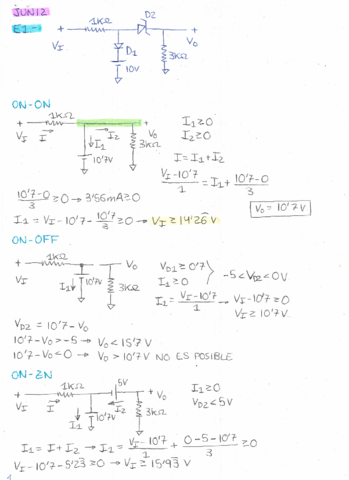 JUN12
E1-
1KΩ
D2
+
+
VI
D1
3KΩ
Vo
10V
ON-ON
1KΩ
+
+
VI
I
I1
I2
Vo
3KΩ
10'7V
I1≥0
I2≥0
I=I1+I2
VI-10'7/1 = I1+ 10'7-0/3
10'7-0/3 ≥0 → 3'56mA≥0
Vo=10'7V
I1 = VI-10'7- 10'7/3 ≥0 → VI≥14'26 V
ON-OFF
1KΩ
+
Vo
VI
I1
10'7V
3KΩ
VD1≥0'7
I1≥0
-5<VD2<0V
I1= VI-10'7/1 → VI-10'7≥0
VI≥10'7V
VD2 = 10'7-Vo
10'7-Vo>-5 → Vo<15'7V
10'7-Vo<0 → Vo>10'7V NO ES POSIBLE
ON-ZN
1KΩ
5V
+
+ Vo
VI
I
I1
I2
10'7V
3KΩ
I1≥0
VD2<5V
I1=I+I2 → I1= VI-10'7/1 + 0-5-10'7/3 ≥0
VI-10'7-5'23≥0 → VI≥15'93V